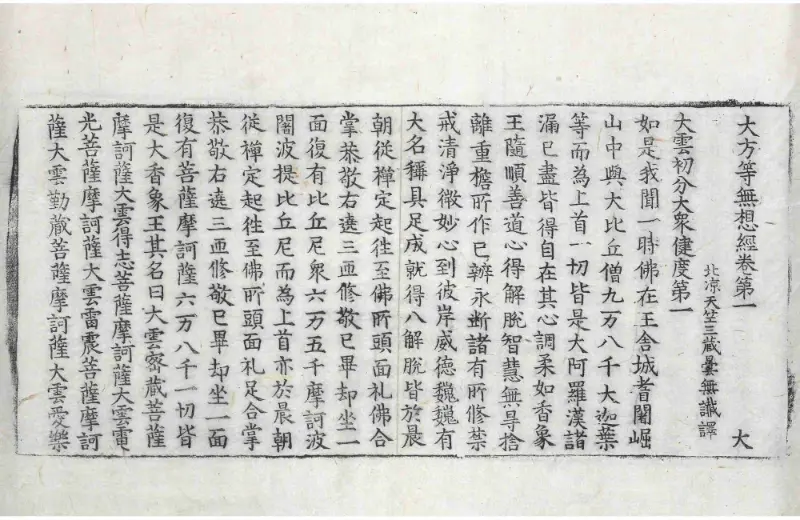 大方等無想經卷第一 大
北涼天竺三藏曇無讖譯
大雲初分大衆健度第一
如是我聞一時佛在王舍城耆闍崛
山中與大比丘僧九万八千大迦葉
等而為上首一切皆是大阿羅漢諸
漏已盡皆得自在其心調柔如香象
王隨順善道心得解脫智慧無㝵捨
離重擔所作已辦永斷諸有所修禁
戒清淨微妙心到彼岸威德巍巍有
大名稱具足成就得八解脫皆於晨
朝從禪定起往至佛所頭面礼佛合
掌恭敬右遶三帀修敬已畢却坐一
面復有比丘尼衆六万五千摩訶波
闍波提比丘尼而為上首亦於晨朝
從禪定起往至佛所頭面礼足合掌
恭敬右遶三帀修敬已畢却坐一面
復有菩薩摩訶薩六万八千一切皆
是大香象王其名曰大雲密藏菩薩
摩訶薩大雲得志菩薩摩訶薩大雲電
光菩薩摩訶薩大雲雷震菩薩摩訶
薩大雲勤藏菩薩摩訶薩大雲愛樂